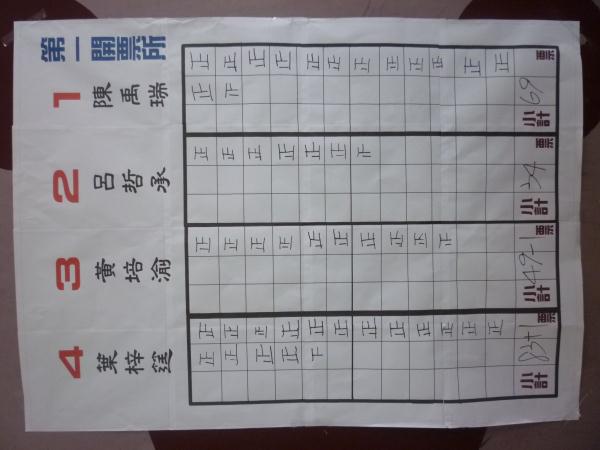 第一開票所
1 陳禹瑞
正正正正正正正正正正正正
正
小計 69 票
2 呂哲承
正正正正正正
小計 34 票
3 黃培渝
正正正正正正正正正
小計 49-1 票
4 葉梓筳
正正正正正正正正正正正正
正正正正下
小計 83+1 票